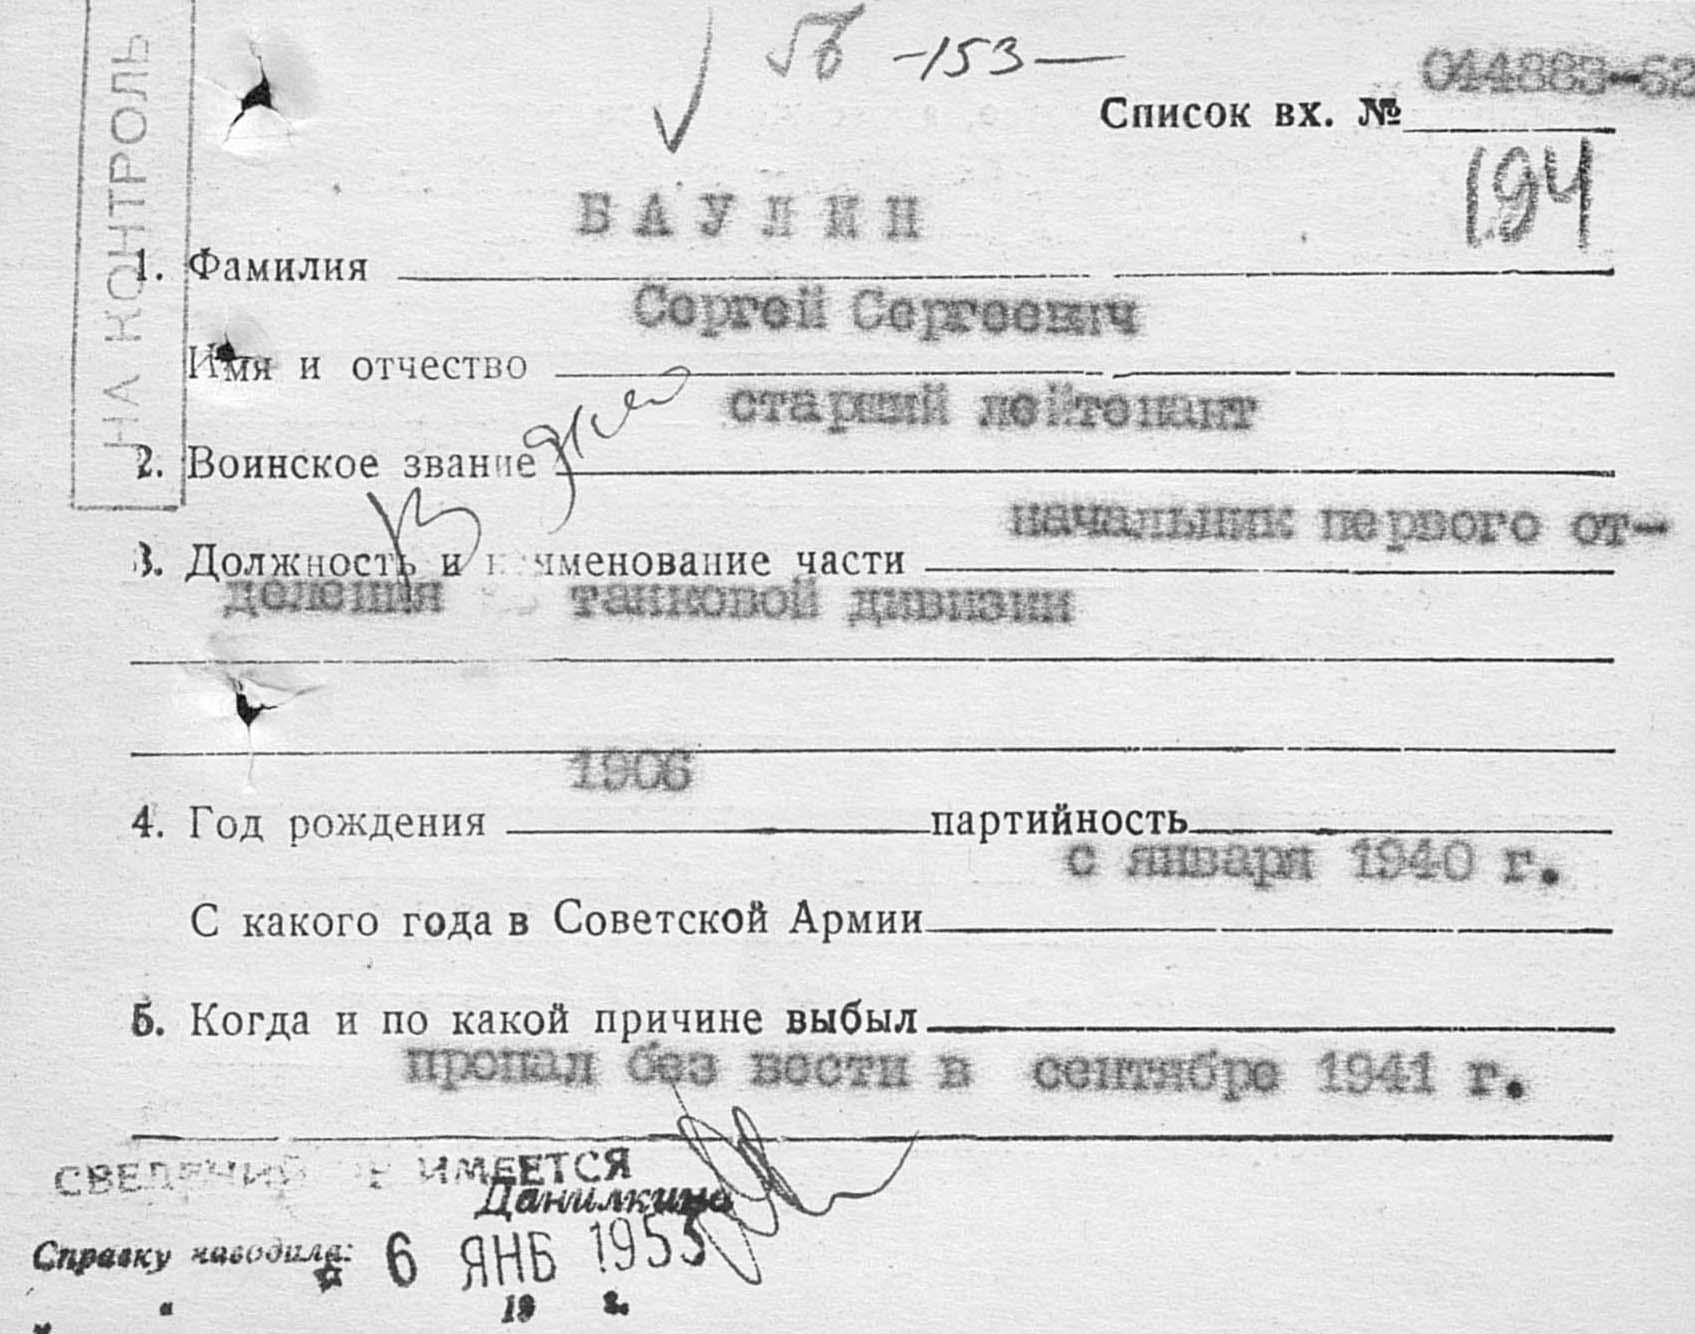 НА КОНТРОЛЬ
-153-
044863-52
Список вх. №
194
БАУЛИН
1. Фамилия
Сергей Сергеевич
Имя и отчество
старший лейтенант
2. Воинское звание
начальник первого от-
3. Должность и наименование части
деления танковой дивизии
1906
4. Год рождения партийность
с января 1940 г.
С какого года в Советской Армии
5. Когда и по какой причине выбыл
пропал без вести в сентябре 1941 г.
СВЕДЕНИЙ НЕ ИМЕЕТСЯ
Данилкина
Справку наводила:
6 ЯНВ 1953
19 г.